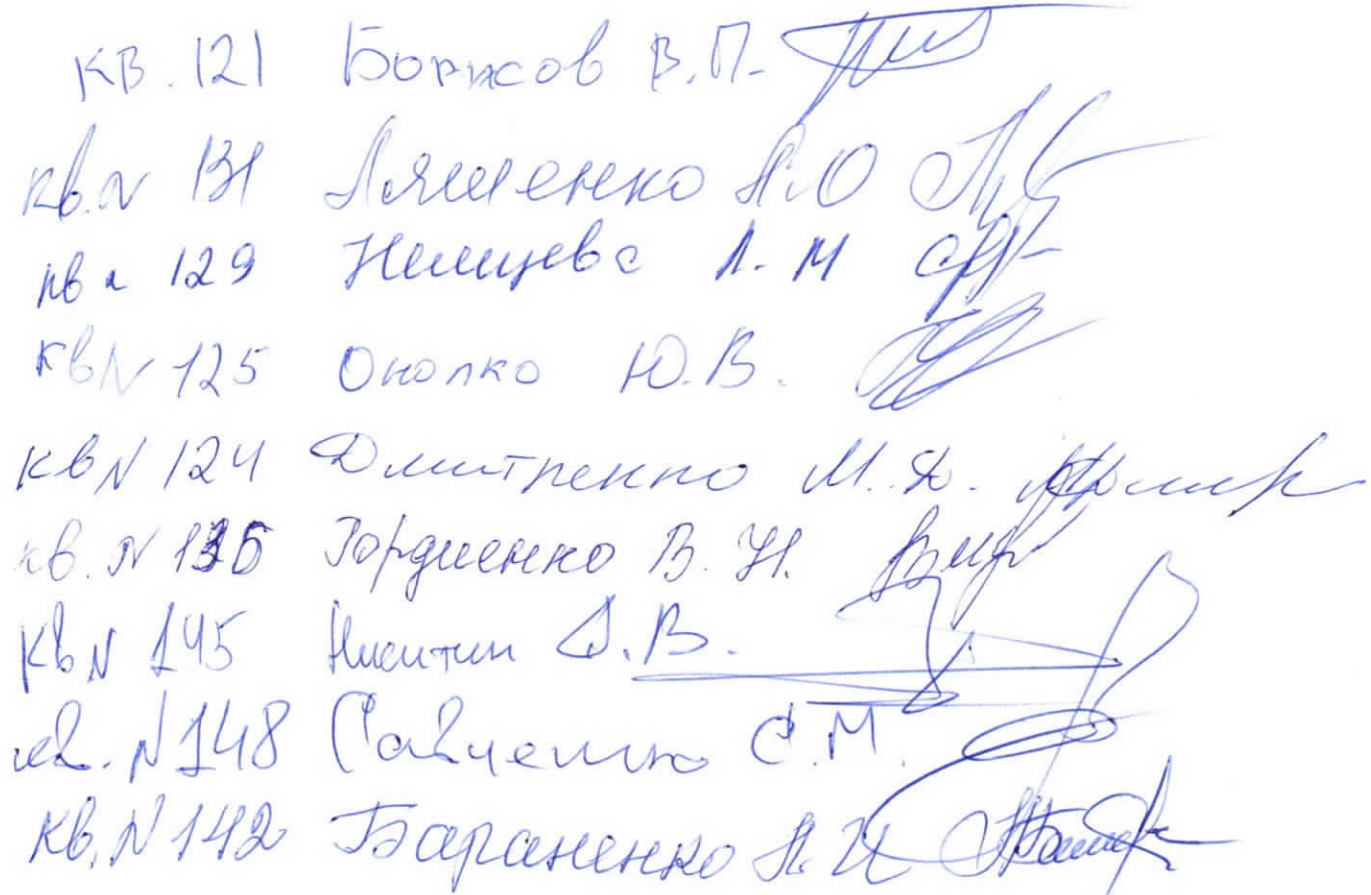 кв. 121 Борисов В.П.
кв. N 131 Ляшенко А.О
кв N 129 Немцева Л. М
кв N 125 Онопко Ю.В.
кв N 124 Дмитренко М. Д.
кв. N 135 Гордиенко В. Н.
кв N 145 Никитин А.В.
кв. N 148 Савченко С.М.
кв. N 142 Бараненко А. И